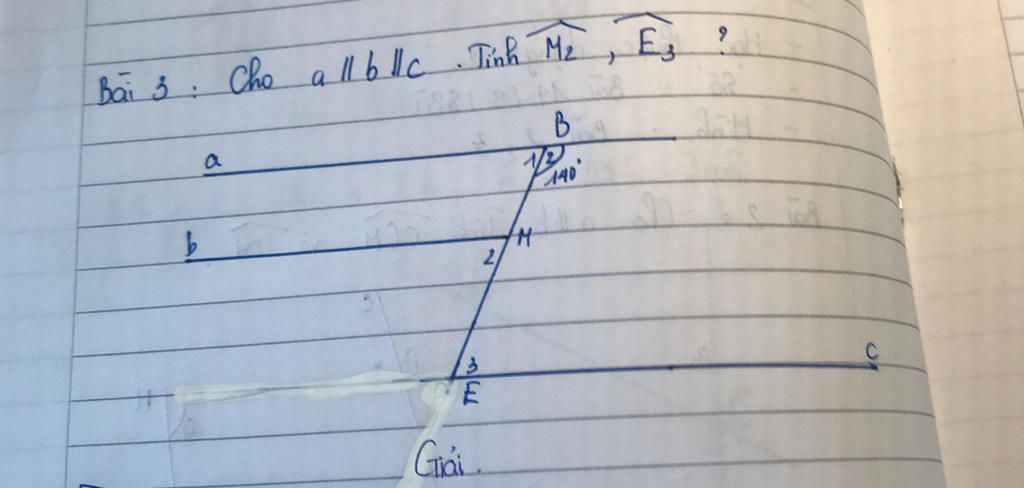 Bài 3 : Cho a // b // c . Tính M̂₂ , Ê₃ ?
B
a
1 2
140°
b
M
2
3
C
E
Giải .